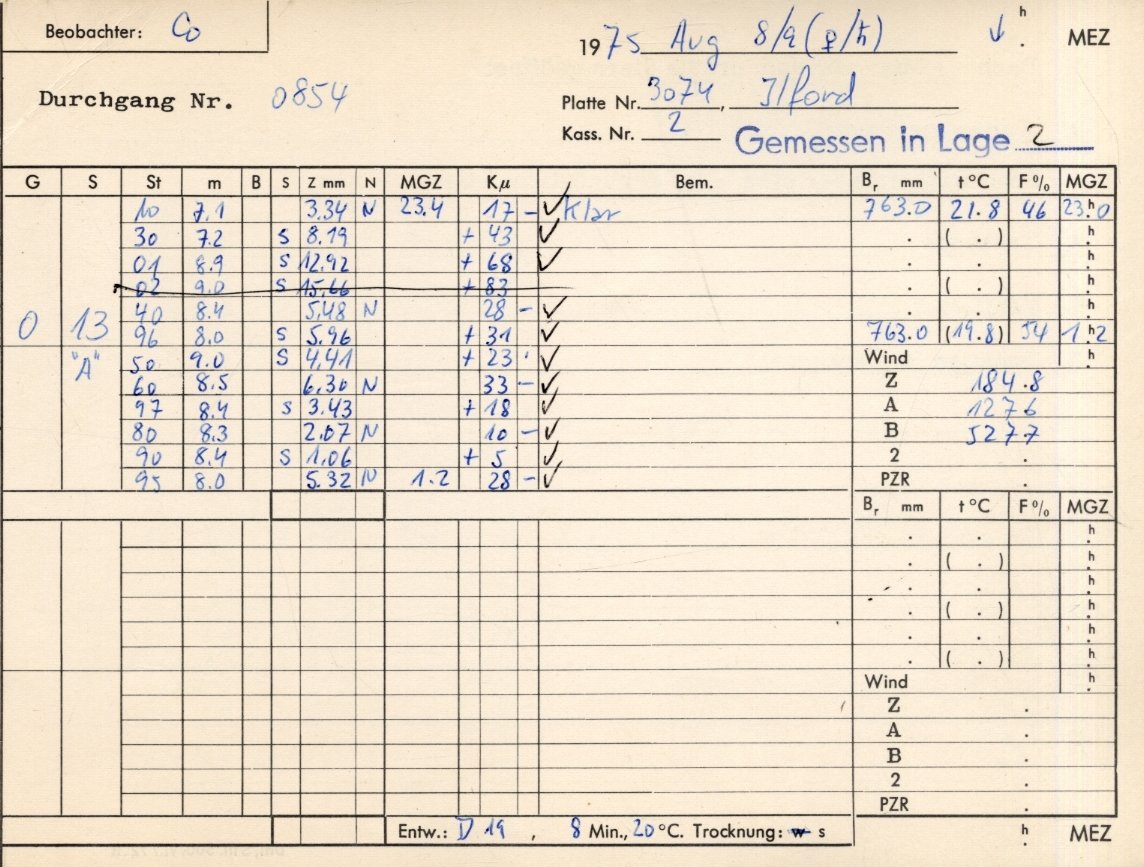 Beobachter: Co
1975 Aug 8/9 (♀/♄) ↓ h . MEZ
Durchgang Nr. 0854
Platte Nr. 3074, Ilford
Kass. Nr. 2 Gemessen in Lage 2
G S St m B S Z mm N MGZ Kμ Bem. Br mm t °C F % MGZ
10 7.1 3.34 N 23.4 17 – ✓ klar 763.0 21.8 46 23.h0
30 7.2 S 8.19 + 43 ✓ . ( . ) h .
01 8.9 S 12.92 + 68 ✓ . . h .
02 9.0 S 15.66 + 83 . ( . ) h .
40 8.4 5.48 N 28 – ✓ . . h .
0 13 96 8.0 S 5.96 + 31 ✓ 763.0 (19.8) 54 1.h2
"A" 50 9.0 S 4.41 + 23 ✓ Wind h .
60 8.5 6.30 N 33 – ✓ Z 184.8
97 8.4 S 3.43 + 18 ✓ A 1276
80 8.3 2.07 N 10 – ✓ B 5277
90 8.4 S 1.06 + 5 ✓ 2 .
95 8.0 5.32 N 1.2 28 – ✓ PZR .
Br mm t °C F % MGZ
. . h .
. ( . ) h .
. . h .
. ( . ) h .
. . h .
. ( . ) h .
Wind h .
Z .
A .
B .
2 .
PZR .
Entw.: D 19 , 8 Min., 20 °C. Trocknung: w s h . MEZ